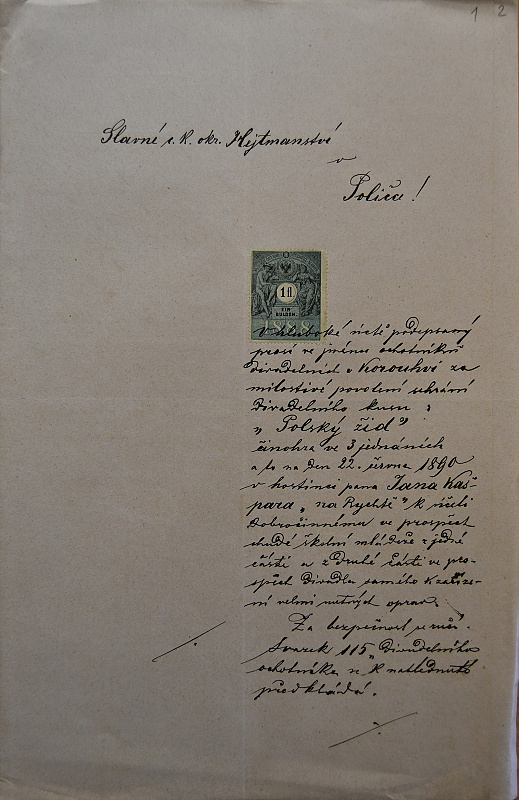 1 2
Slavné c. k. okr. Hejtmanství
v
Poličce!
1 fl
EIN
GULDEN.
1888
V hluboké úctě podepsaný
prosí ve jménu ochotníků
divadelních v Korouhvi za
milostivé povolení sehrání
divadelního kusu:
„Polský žid"
činohra ve 3 jednáních
a to na den 22. června 1890
v hostinci pana Jana Kaš-
para „na Rychtě" k účeli
dobročinnému ve prospěch
chudé školní mládeže z jedné
části a z druhé části ve pro-
spěch divadla samého k zaříze-
ní velmi nutných oprav.
Za bezpečnost se ručí.
Svazek 115 „Divadelního
ochotníka" se k nahlédnutí
předkládá.